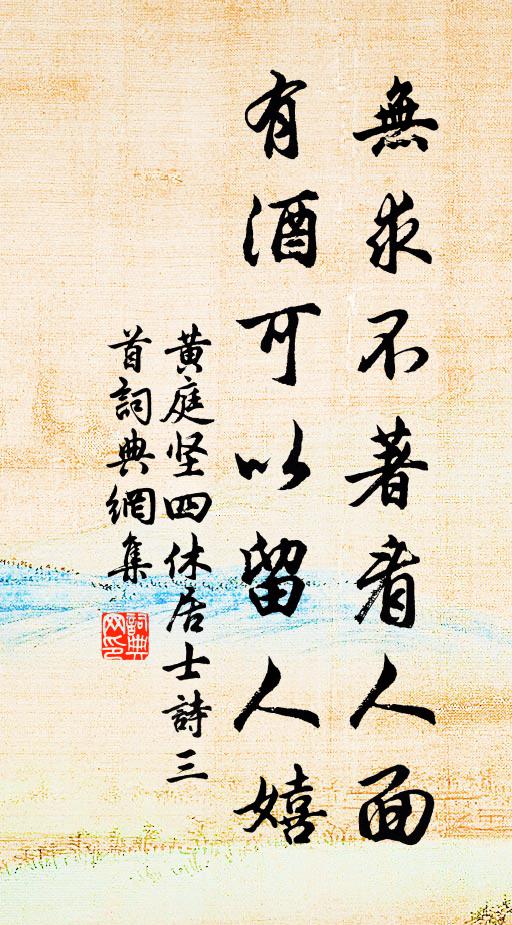 無求不著看人面
有酒可以留人嬉
黄庭坚四休居士詩三
首詞典網集
詞典网印